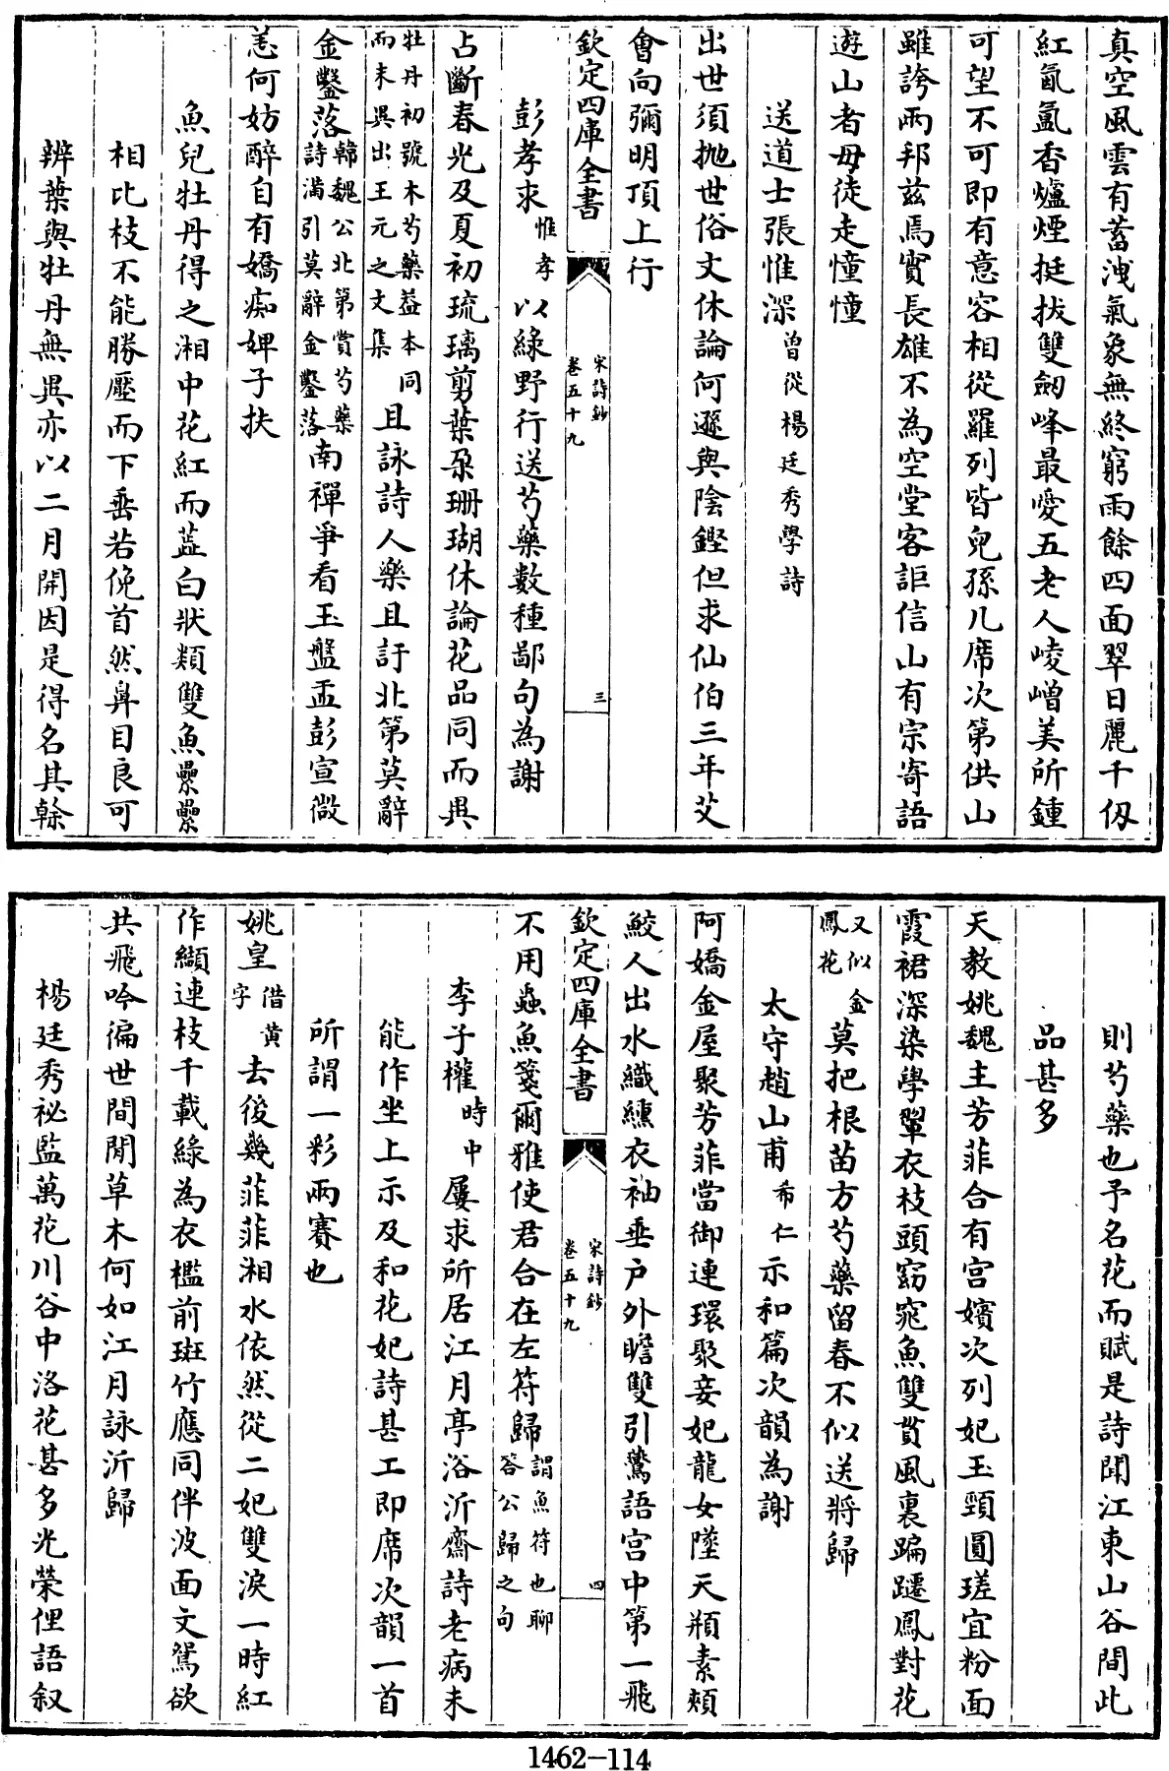 真空風雲有蓄洩氣象無終窮雨餘四面翠日麗千仭
紅氤氳香爐煙挺拔雙劒峰最愛五老人崚嶒美所鍾
可望不可即有意容相從羅列皆兒孫几席次第供山
雖誇兩邦兹焉實長雄不為空堂客詎信山有宗寄語
遊山者毋徒走憧憧
送道士張惟深曽從楊廷秀學詩
出世須抛世俗文休論何遜與陰鏗但求仙伯三年艾
會向彌明頂上行
欽定四庫全書
宋詩鈔
卷五十九
三
彭孝求惟孝以緑野行送芍藥數種鄙句為謝
占斷春光及夏初琉璃剪葉朶珊瑚休論花品同而異
牡丹初號木芍藥葢本同
而末異出王元之文集
且詠詩人樂且訏北第莫辭
金鑿落
韓魏公北第賞芍藥
詩滿引莫辭金鑿落
南禪爭看玉盤盂彭宣㣲
恙何妨醉自有嬌痴婢子扶
魚兒牡丹得之湘中花紅而蘂白狀類雙魚纍纍
相比枝不能勝壓而下垂若俛首然鼻目良可
辨葉與牡丹無異亦以二月開因是得名其榦
則芍藥也予名花而賦是詩聞江東山谷間此
品甚多
天教姚魏主芳菲合有宫嬪次列妃玉頸圓瑳宜粉面
霞裙深染學翬衣枝頭窈窕魚雙貫風裏蹁躚鳳對花
又似金
鳳花
莫把根苗方芍藥留春不似送將歸
太守趙山甫希仁示和篇次韻為謝
阿嬌金屋聚芳菲當御連環聚妾妃龍女墜天頳素頰
鮫人出水織纁衣袖垂户外瞻雙引鶯語宫中第一飛
欽定四庫全書
宋詩鈔
卷五十九
四
不用蟲魚箋爾雅使君合在左符歸
謂魚符也聊
答公歸之句
李子權時中屢求所居江月亭浴沂齋詩老病未
能作坐上示及和花妃詩甚工即席次韻一首
所謂一彩兩賽也
姚皇借黄字去後幾菲菲湘水依然從二妃雙淚一時紅
作纈連枝千載緑為衣檻前斑竹應同伴波面文鴛欲
共飛吟徧世間閒草木何如江月詠沂歸
楊廷秀祕監萬花川谷中洛花甚多光榮俚語叙
1462-114